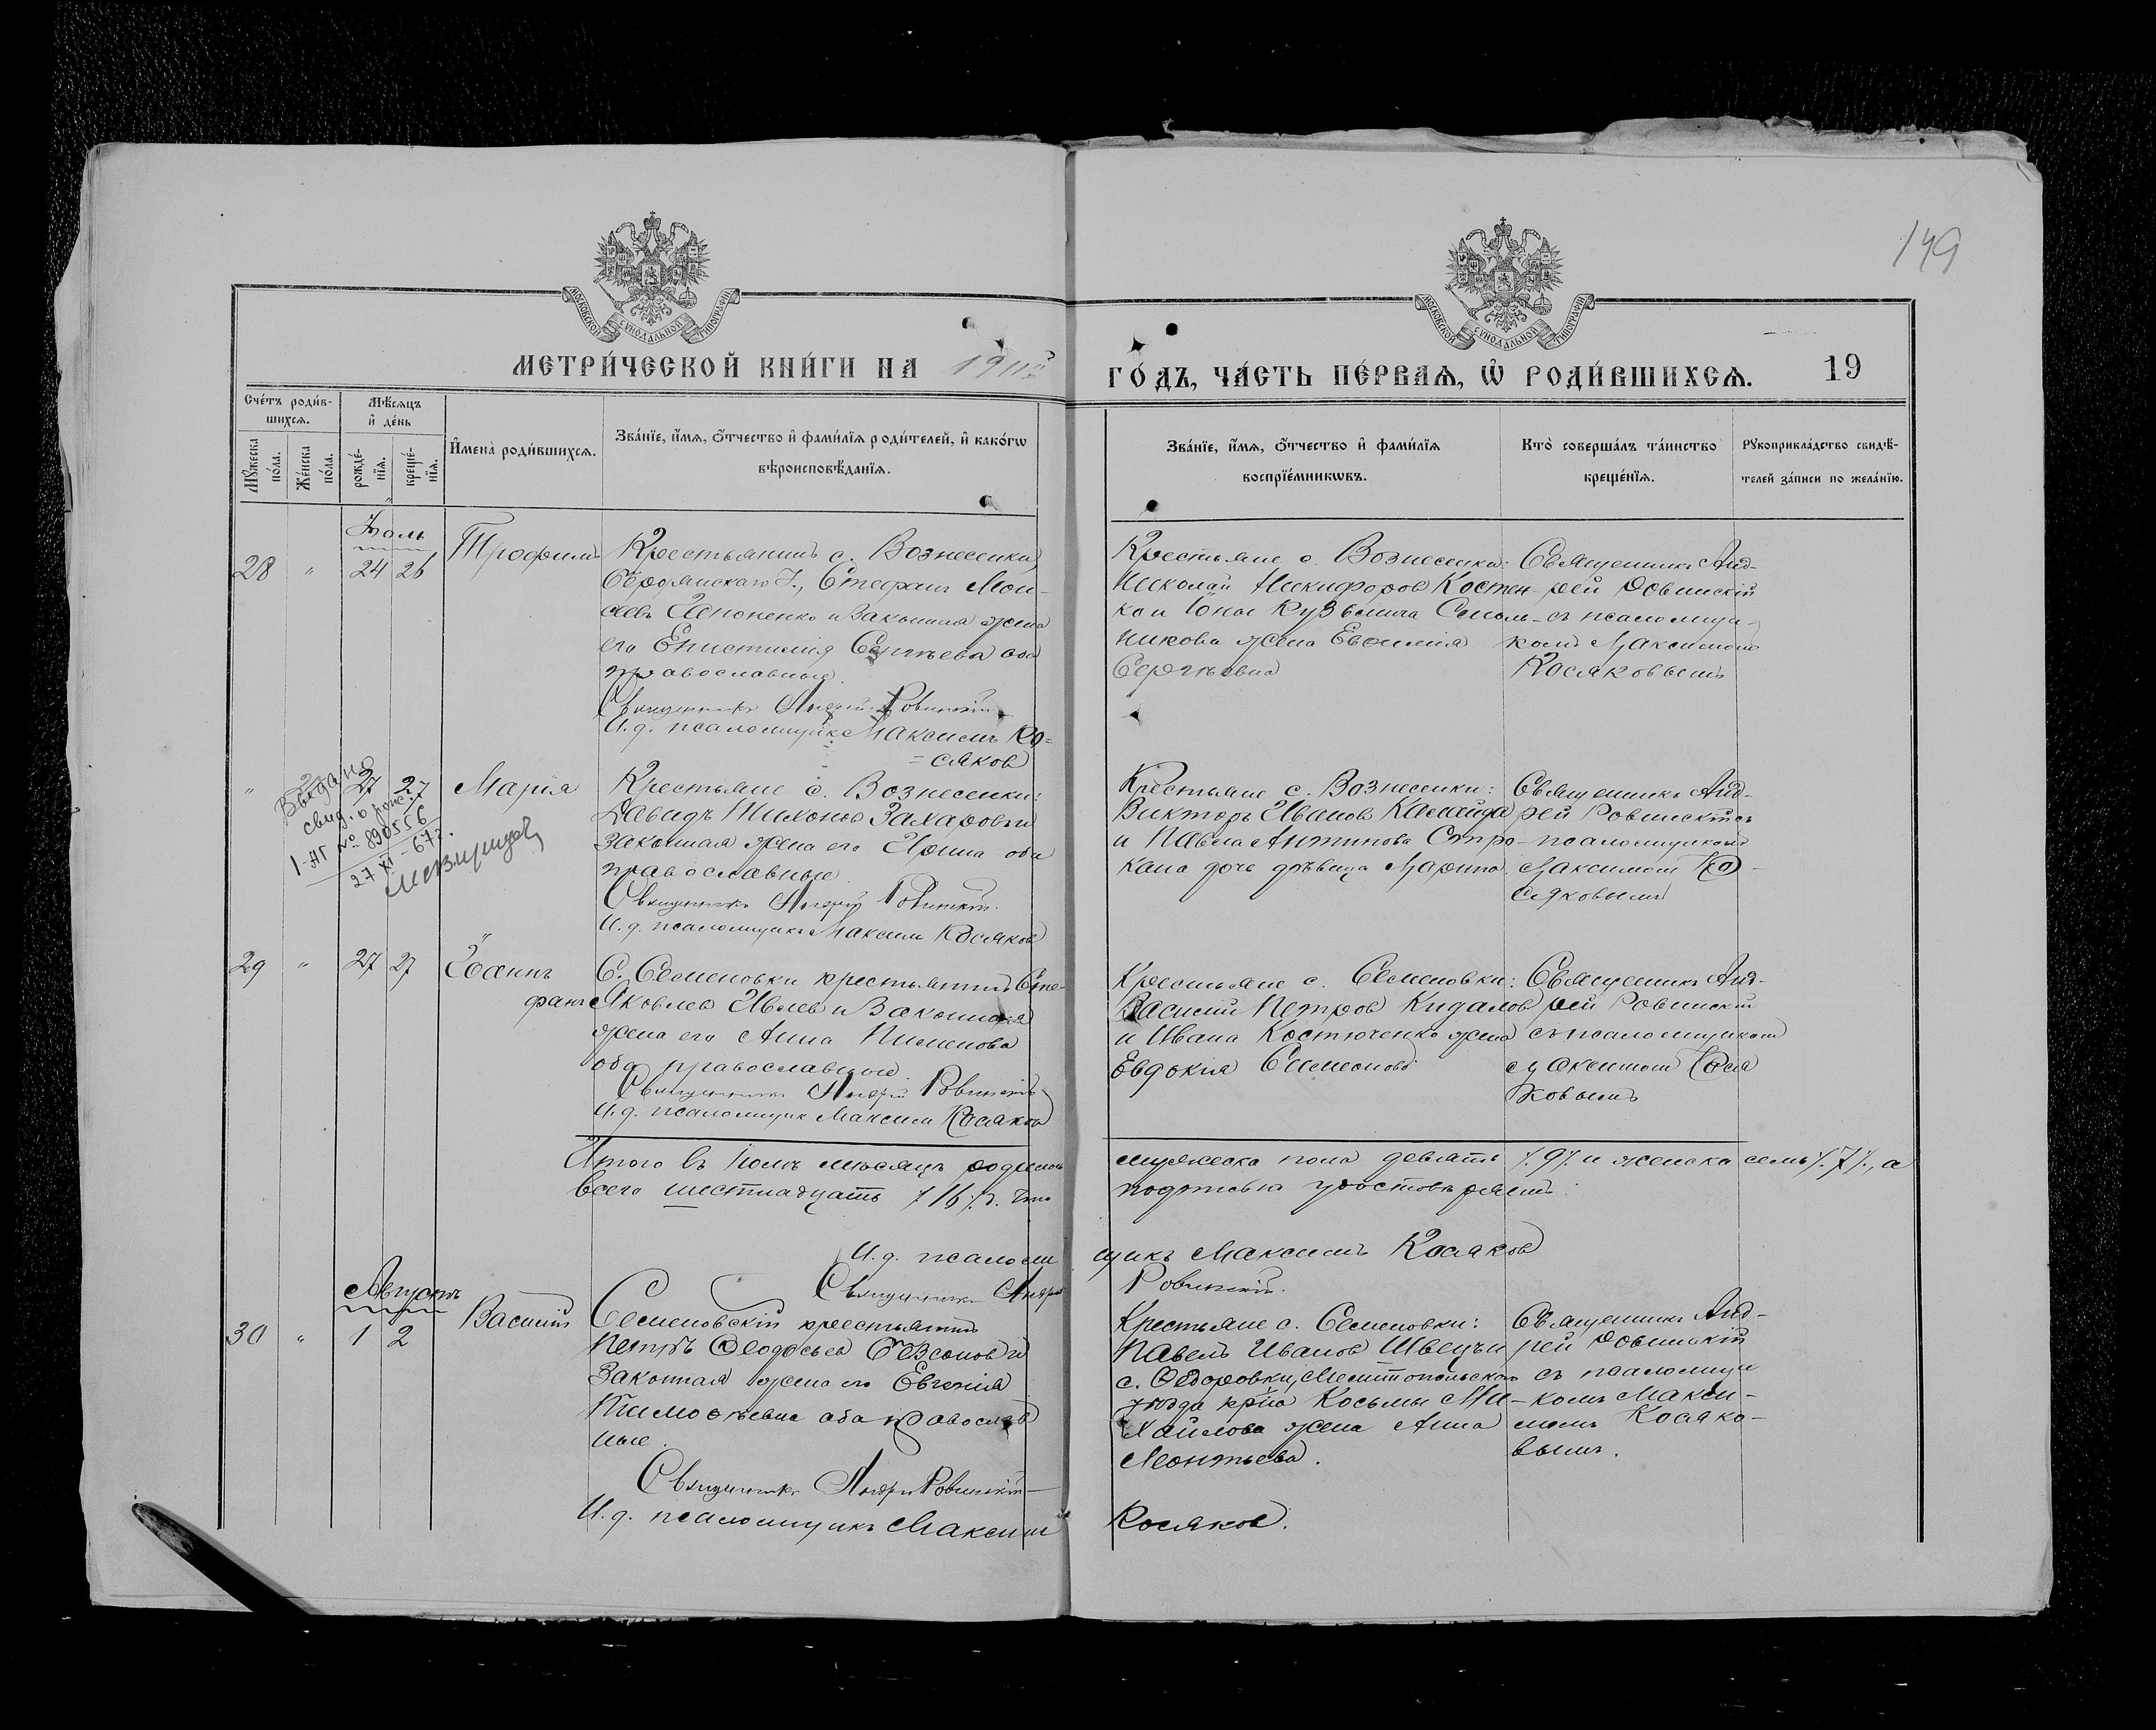 149
МОСКОВСКОЙ СѴНОДАЛЬНОЙ ТИПОГРАФІИ
МОСКОВСКОЙ СѴНОДАЛЬНОЙ ТИПОГРАФІИ
МЕТРИ́ЧЕСКОЙ КНИ́ГИ НА 1911й
ГО́ДЪ, ЧА́СТЬ ПЕ́РВАѦ, Ѡ҆ РОДИ́ВШИХСѦ. 19
Сче́тъ роди́в-
шихсѧ.
Мꙋжеска
по́ла.
Же́нска
по́ла.
Мѣ́сѧцъ
и҆ де́нь
рожде́-
нїѧ.
креще́-
нїѧ.
И҆мена̀ роди́вшихсѧ.
Зва́нїе, и҆́мѧ, ѻ҆́тчество и҆ фами́лїѧ роди́телей, и҆ како́гѡ
вѣроисповѣ́данїѧ.
Зва́нїе, и҆́мѧ, ѻ҆́тчество и҆ фами́лїѧ
воспрїе́мникѡвъ.
Кто̀ соверша́лъ та́инство
креще́нїѧ.
Рꙋкоприкла́дство свидѣ́-
телей за́писи по жела́нїю.
Іюль
28 " 24 26
Трофимъ
Крестьянинъ с. Вознесенки
Бердянскаго У., Стефанъ Мои-
сеевъ и законная жена
его Епистимія Сергѣева оба
православные.
Священникъ Андрей Ровинскій
И.д. псаломщикъ Максимъ Ко-
сяков
Крестьяне с. Вознесенки:
Николай Никифоров Костен-
ко и Іоны Кузьмича Смоль-
никова жена Евфимія
Сергѣевна
Священникъ Анд-
рей Ровинскій
съ псаломщи-
комъ Максимомъ
Косяковымъ
" 27 27
Выдано
свид. о рожд.
1-АГ № 890556
27 XI-67г.
Марія
Крестьяне с. Вознесенки:
Давидъ Тихонов Захаров и
законная жена его Ирина оба
православные.
Священникъ Андрей Ровинскій.
И.д. псаломщикъ Максим Косяков
Крестьяне с. Вознесенки:
Викторъ Иванов Камайда
и Павла Антипова Стро-
кана дочь дѣвица Марина.
Священникъ Анд-
рей Ровинскій съ
псаломщикомъ
Максимомъ Ко-
сяковымъ
29 " 27 27
Іоаннъ
С. Семеновки крестьянинъ Сте-
фанъ Яковлев Ивлев и законная
жена его Анна Пименова
оба православные.
Священникъ Андрей Ровинскій
И.д. псаломщик Максим Косяков
Крестьяне с. Семеновки:
Василий Петров Кидалов
и Ивана Костюченко жена
Евдокія Симеонова
Священникъ Анд-
рей Ровинскій
съ псаломщикомъ
Максимомъ Кося
ковымъ
Итого въ Іюлѣ мѣсяцѣ родилось мужеска пола девять /.9/. и женска семь /.7/., а
всего шестнадцать /16/. Что подписью удостовѣряемъ:
И.д. псаломщикъ Максимъ Косяков
Священникъ Андрей Ровинскій.
Августъ
30 " 1 2
Василій
Семеновскій крестьянинъ
Петръ Феодосьев и
законная жена его Евгенія
Тимофѣевна оба православ
ные.
Священникъ Андрей Ровинскій
И.д. псаломщикъ Максим Косяков.
Крестьяне с. Семеновки:
Павелъ Иванов Швецъ и
с. Федоровки, Мелитопольскаго
уѣзда кр-на Косьмы Ми-
хайлова жена Анна
Леонтьева.
Священникъ Анд-
рей Ровинскій
съ псаломщи
комъ Макси-
момъ Косяко-
вымъ.